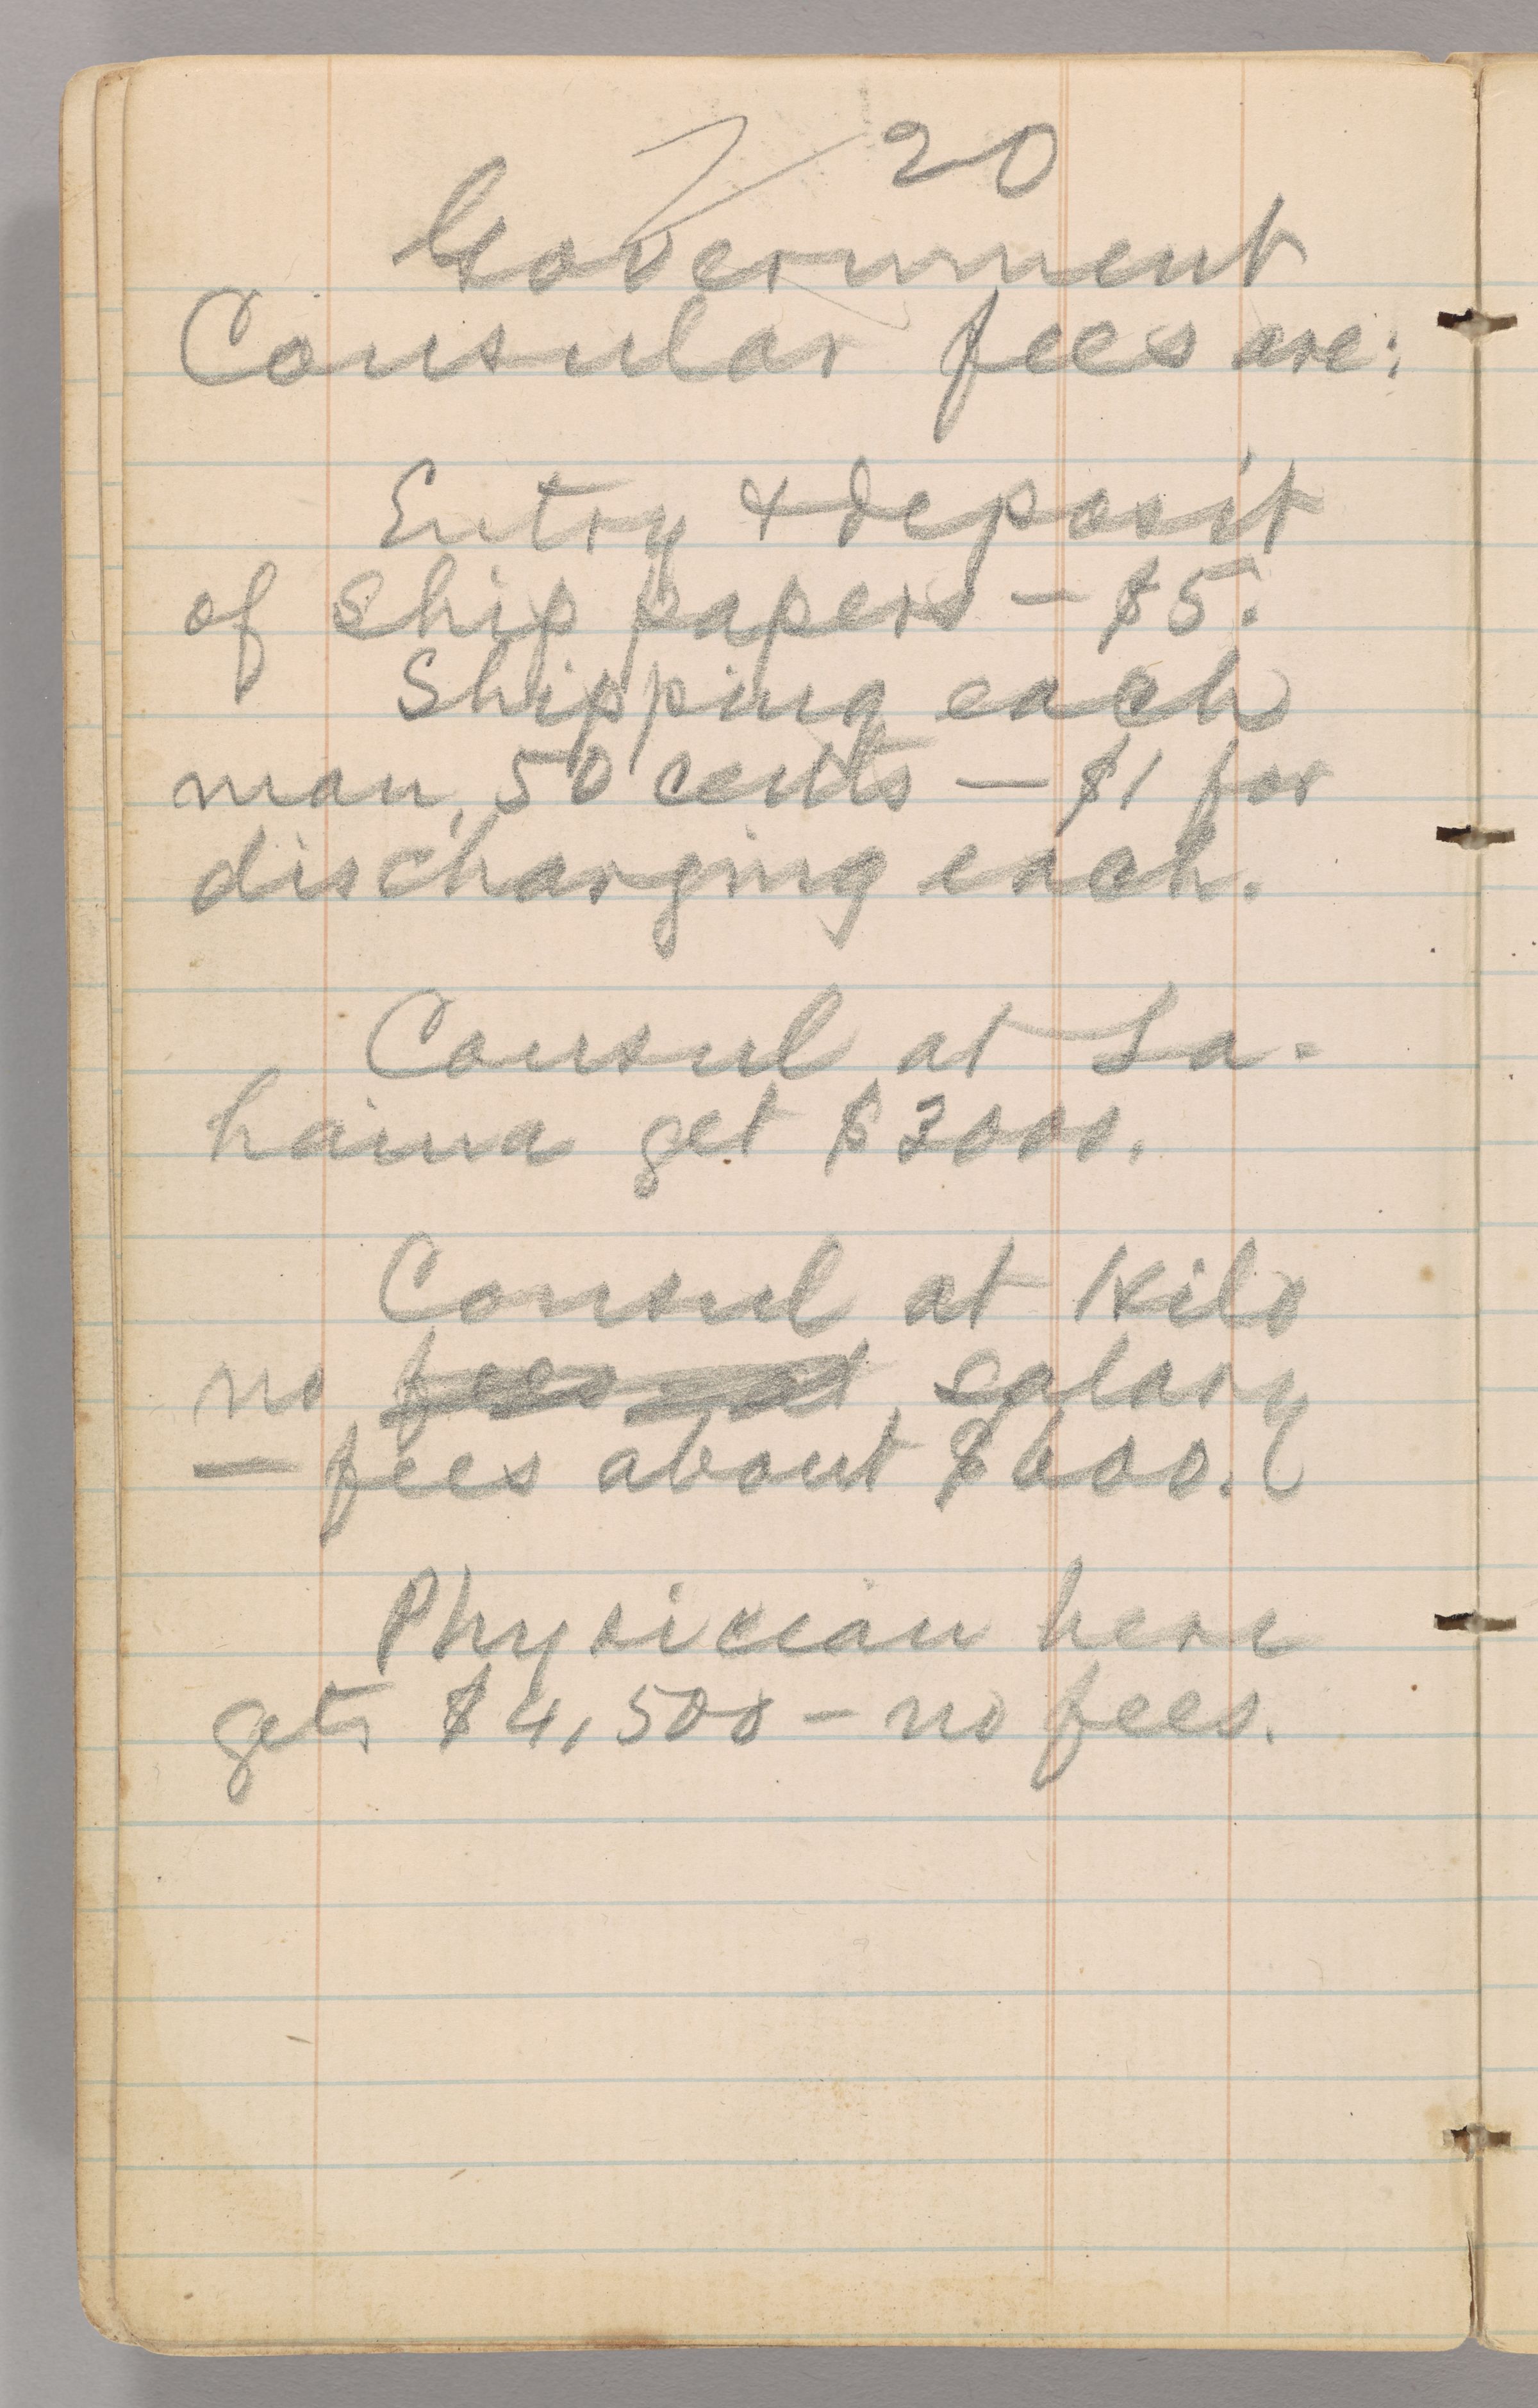 20
Government
Consular fees are:
Entry & deposit
of ship papers – $5.
Shipping each
man, 50 cents — $1 for
discharging each.
Consul at La-
haina get $3000.
Consul at Hilo
no fees salary
— fees about $600.
Physician here
gets $4,500 – no fees.